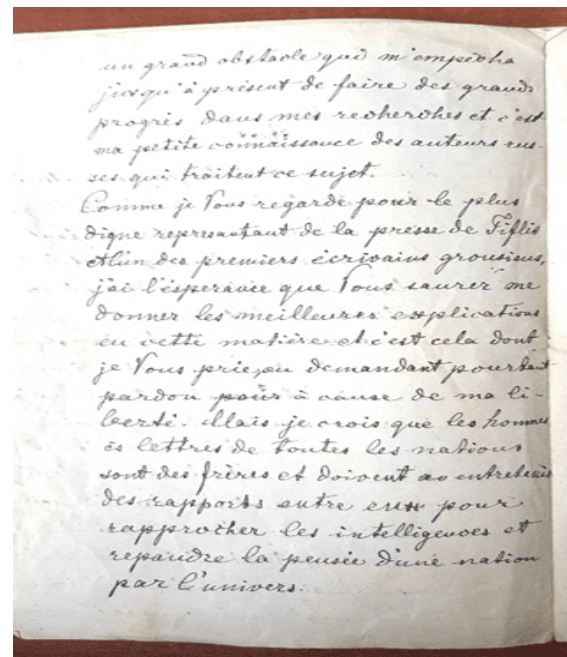 un grand obstacle qui m'empêcha
jusqu'à présent de faire des grands
progrès dans mes recherches et c'est
ma petite connaissance des auteurs rus-
ses qui traitent ce sujet.
Comme je Vous regarde pour le plus
digne représantant de la presse de Tiflis
et l'un des premiers écrivains grousiens,
j'ai l'ésperance que Vous saurez me
donner les meilleures explications
en cette matière et c'est cela dont
je Vous prie, en demandant pourtant
pardon pour à cause de ma li-
berté. Mais je crois que les hommes
ès lettres de toutes les nations
sont des frères et doivent entretenir
des rapports entre eux pour
rapprocher les intelligences et
repandre la pensée d'une nation
par l'univers.